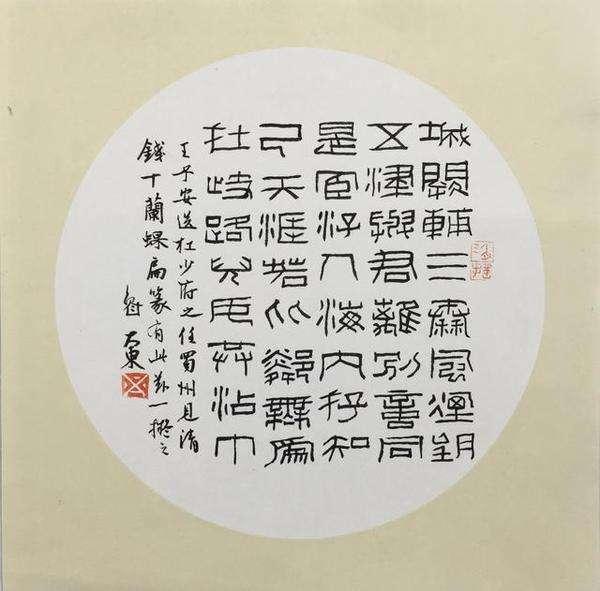 城闕輔三秦風煙望
五津與君離別意同
是宦游人海內存知
己天涯若比鄰無為
在歧路兒女共沾巾
王子安送杜少府之任蜀州見清
錢十蘭螺扁篆有此一擬之
大東